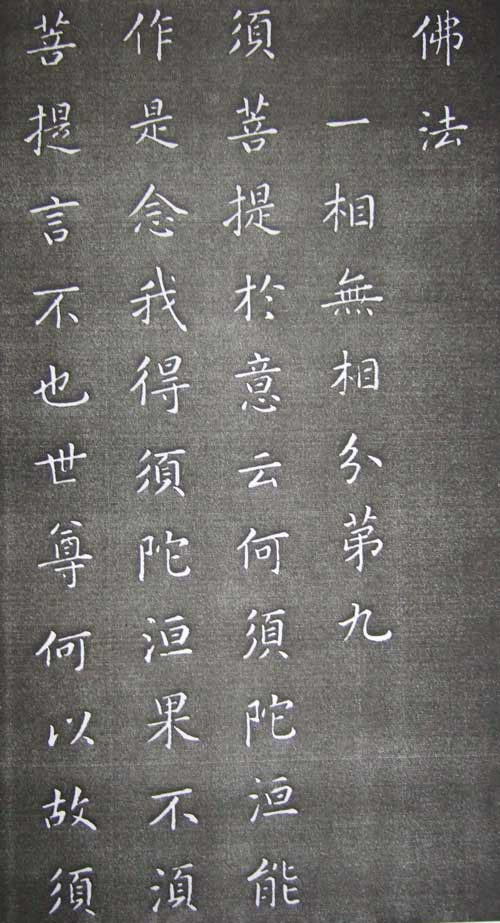 佛法
一相無相分第九
須菩提於意云何須陀洹能
作是念我得須陀洹果不須
菩提言不也世尊何以故須